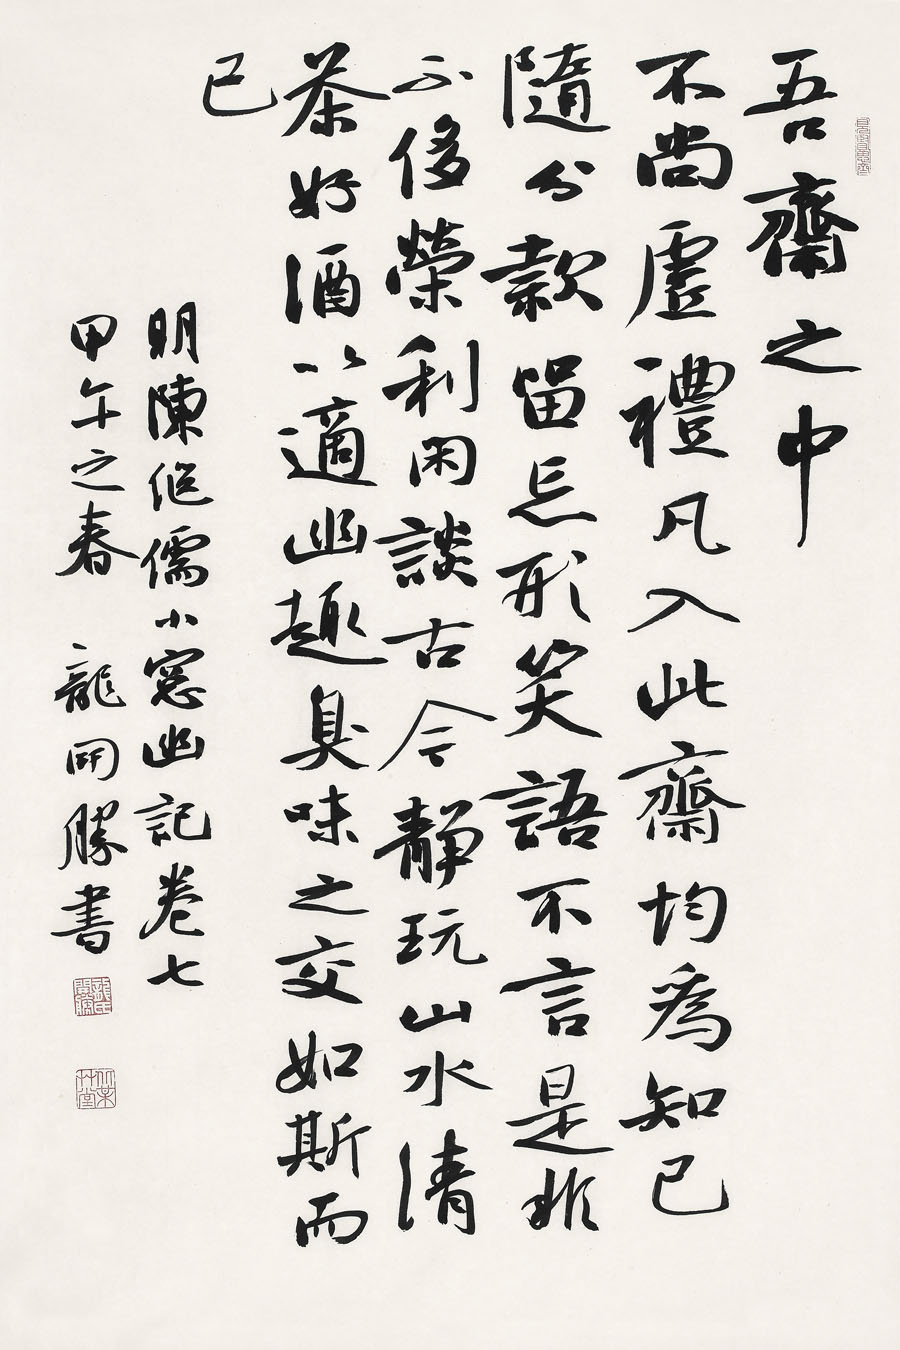 吾齋之中
不尚虛禮凡入此齋均爲知己
隨分款留忘形笑語不言是非
不侈榮利閑談古今靜玩山水清
茶好酒以適幽趣臭味之交如斯而
已
明陳繼儒小窻幽記卷七
甲午之春 龍開勝書